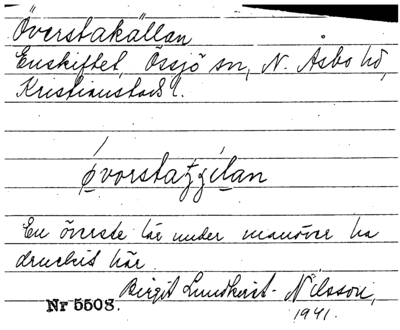 Överstakällan
Enskiftet, Össjö sn, N. Åsbo hd,
Kristianstads l.
En överste lär under manöver ha
druckit här.
Birgit Lundkvist-Nilsson,
Nr 5508.
1941.